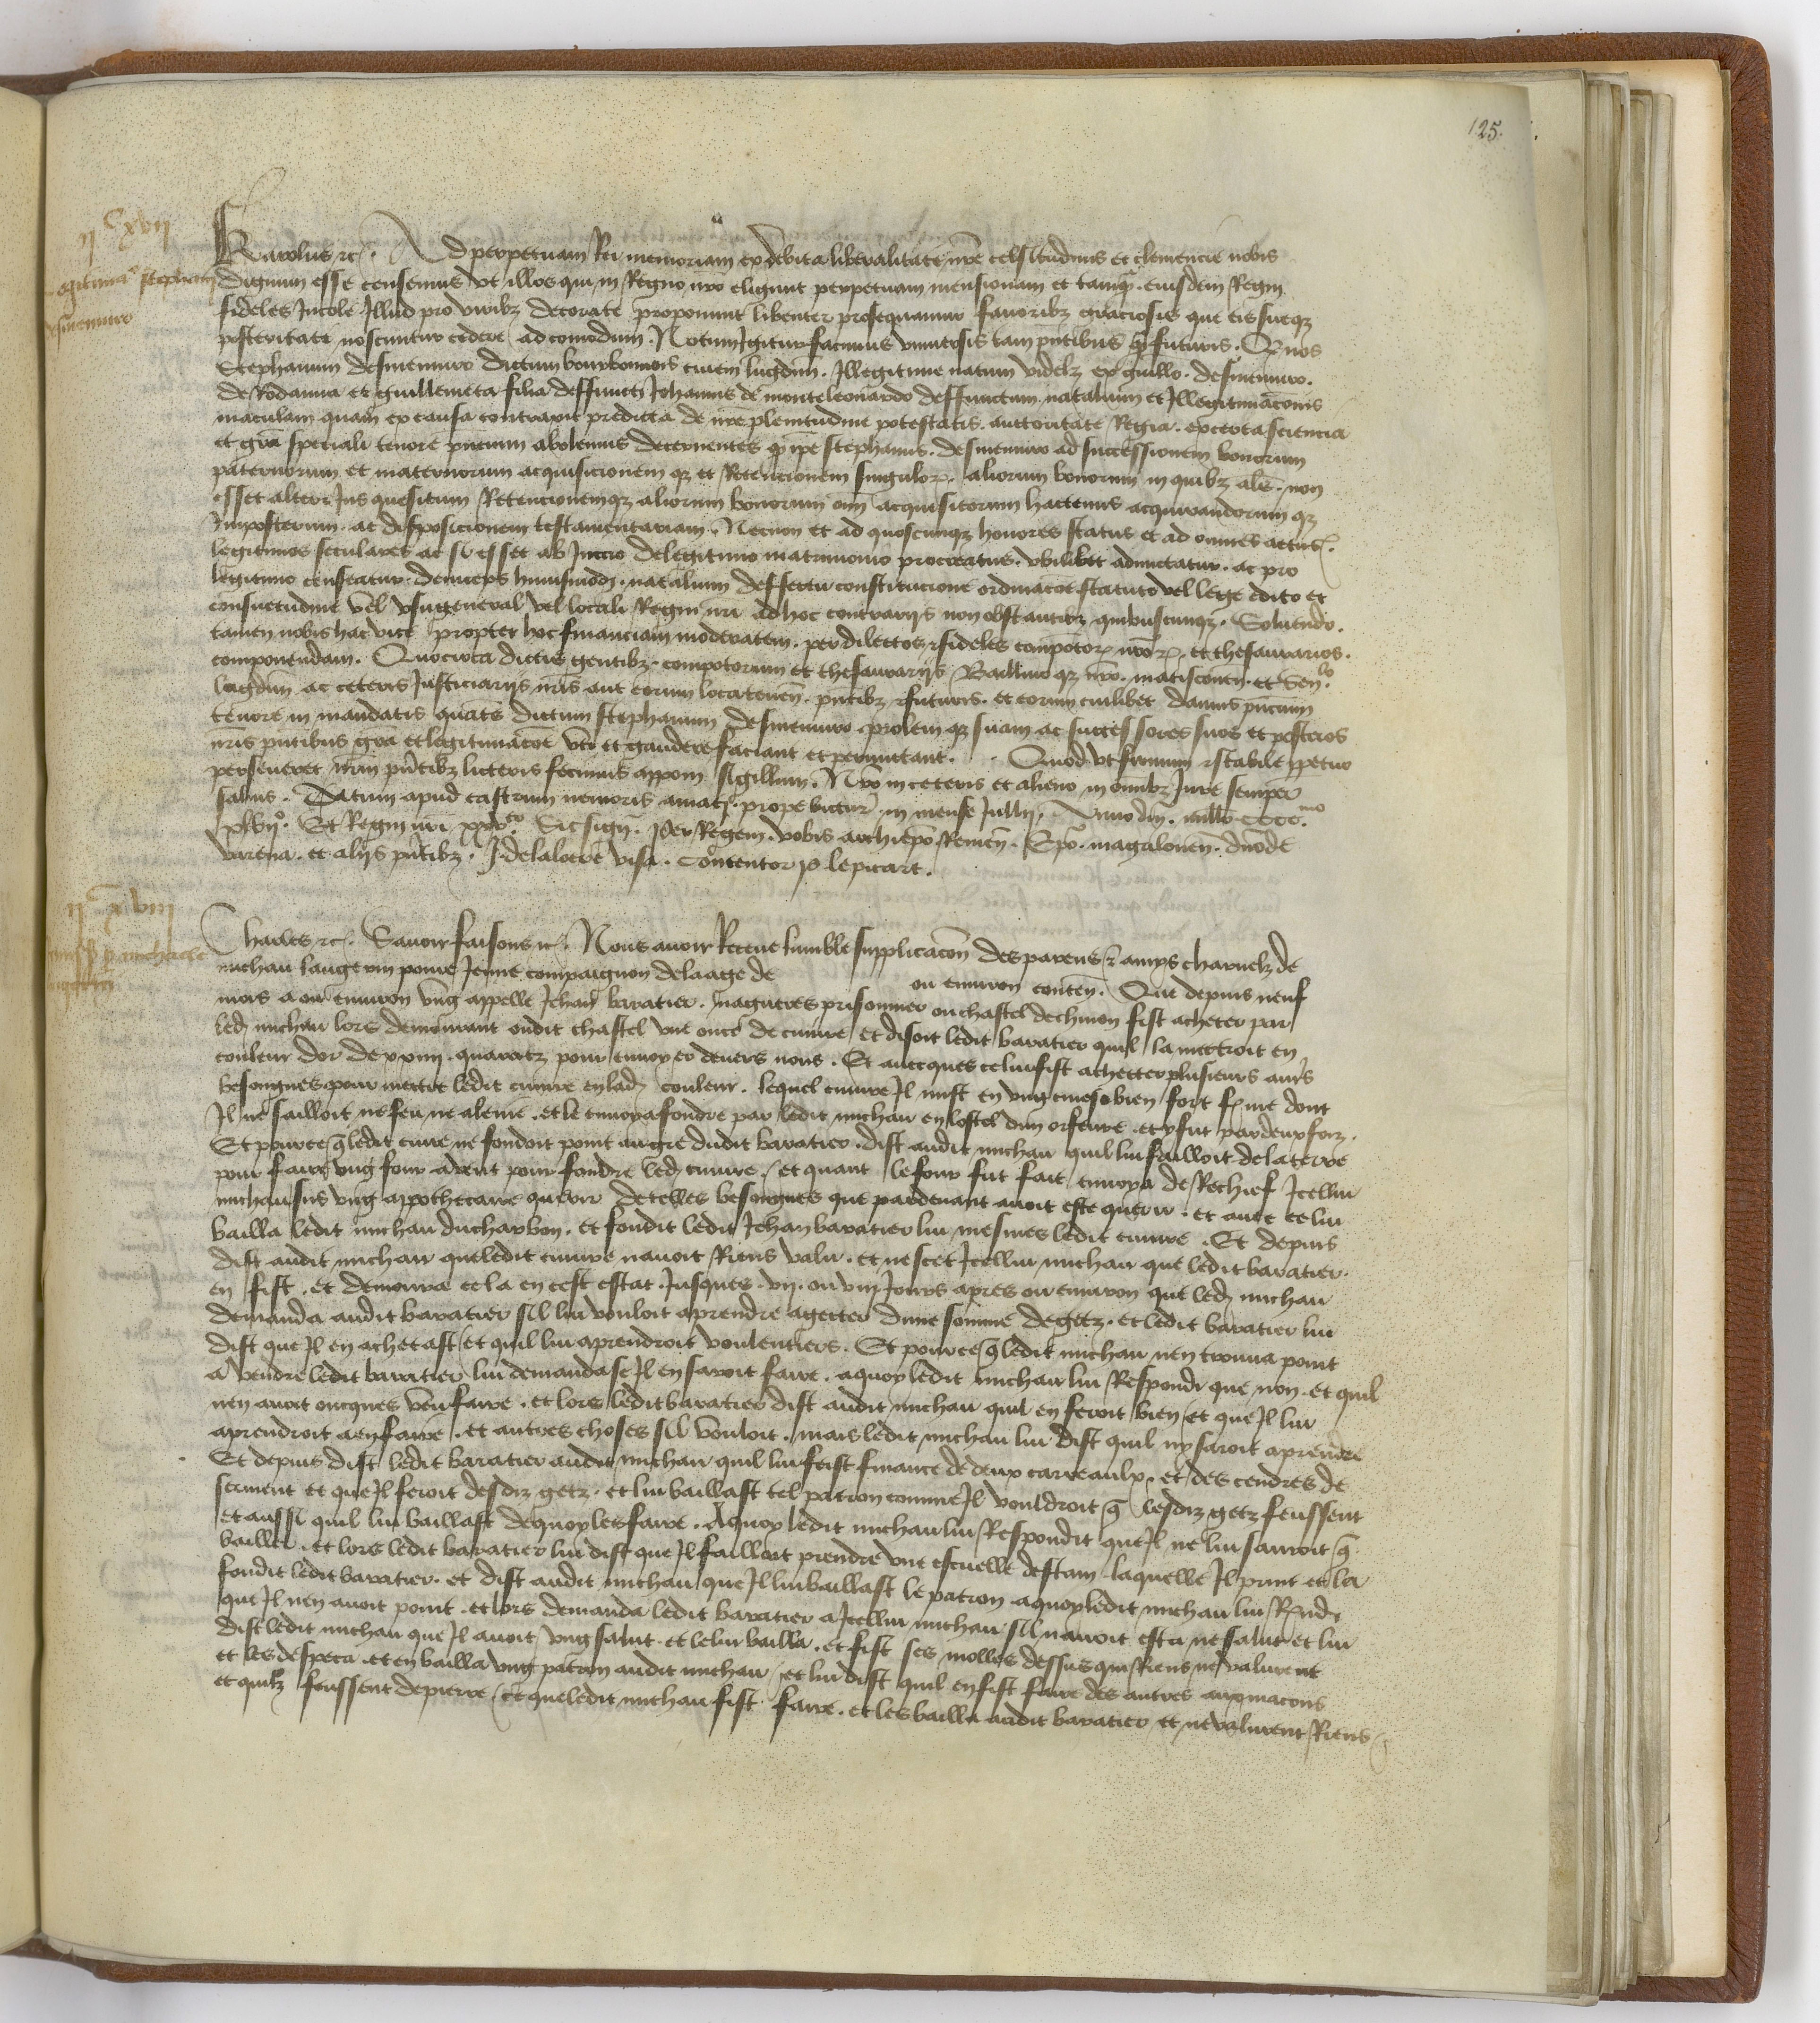 125.
IIᶜ XVII
Karolus etc. Ad perpetuam Rei memoriam ex debita liberalitate nre celsitudinis et clemencie nobis
dignum esse censemus ut illos qui in Regno nro eligunt perpetuam mensionam et tamq. eiusdem Regni
fideles Incole Illud pro viribz decorare proponunt libenter prosequamur favoribz graciosis que eis sueqz
posteritati noscuntur cedere ad comodum. Notum Igitur facimus universis tam pntibus q futuris. Q nos
Stephanum desmemuro dictum bourbonnois civem lugdun. Illegitime natum videlz ex guillo. desmemuro.
de Rodanna et guillemeta filia deffuncti Johannis de monteleonardo deffunctum natalium et Illegitimacionis
maculam quam ex causa contraxit predicta de nre plenitudine potestatis. auctoritate Regia. ex certa sciencia
et gra speciali tenore pncium abolemus decernentes q ipe stephanus. desmemuro ad successionem bonorum
paternorum et maternorum acquisicionem qz et Retencionem singulor. aliorum bonorum in quibz alr. non
esset alteri Jus quesitum Retencionemqz aliorum bonorum oim acquisitorum hactenus acquirandorum qz
Imposterum. ac disposicionem testamentariam. Necnon et ad quoscunqz honores status et ad omnes actus.
legitimos seculares ac si esset ab Inicio de legitimo matrimonio procreatus. ubilibet admictatur. ac pro
legitimo censeatur. deinceps huiusmodi. natalium deffectu constitucione ordinacoe statuto vel lege edito et
consuetudine vel usu general vel locali Regni nri ad hoc contrariis non obstantibz quibuscunqz. Solvendo.
tamen nobis hac vice propter hoc financiam moderatam. per dilectos et fideles compotor nror. et thesaurarios.
componendam. Quocirca dictis gentibz. compotorum et thesaurariis Baillivo qz nro. matisconen. et Senlo.
lugdun ac ceteris Justiciariis nris aut eorum locatenen. pntibz et futuris. et eorum cuilibet damus pncium
tenore in mandatis quatis dictum stephanum desmemuro prolem qz suam ac successores suos et posteros
nris pntibus gra et legitimacoe uti et gaudere faciant et permictant. Quod ut firmum et stabile ppetuo
perseveret nrm pntibz licteris fecimus apponi sigillum. Nro in ceteris et alieno in omibz Jure semper
salvis. Datum apud castrum nemoris amati. prope bictur. in mense Jullii. Anno dni. millo CCCCmo
xlviio. Et Regni nri xxvto. Sic sign. Per Regem. vobis archiepo Remen. Epo. magalonen. dno de
varena. et aliis pntibz. J. delaloere visa. Contentor P le picart.
IIᶜ XVIII
Charles etc. Savoir faisons etc. Nous avoir Receue lumble supplicacon des parens et amys charnelz de
michau lange un povre Jeune compaignon de laage de ou environ conten. Que depuis neuf
mois a ou environ ung appelle Jehan baratier. nagueres prisonnier ou chastel de chinon fist acheter par
led michau lors demourant oudit chastel une once de cuivre et disoit ledit baratier quil la mectroit en
couleur dor de xxiiii. quaratz pour envoyer devers nous. Et avecques ce lui fist achetter plusieurs autrs
besongnes pour mectre ledit cuivre en lad couleur. lequel cuivre Il mist en ung creuset bien fort ferme dont
Il ne sailloit ne feu ne alene. et le envoya fondre par ledit michau en lostel dun orfevre. et y fut par deux foiz.
Et pource q ledit cuivre ne fondoit point au gre dudit baratier. dist audit michau quil lui failloit de la terre
pour faire ung four a vent pour fondre led cuivre. et quant le four fut fait envoya de Rechief Icellui
michau sus ung appothecaire querir de telles besongnes que par devant avoit este querir. et avec ce lui
bailla ledit michau du charbon. et fondit ledit Jehan baratier lui mesmes ledit cuivre. Et depuis
dist audit michau que ledit cuivre navoit Riens valu. et ne scet Icellui michau que ledit baratier.
en fist. et demoura cela en cest estat. Jusques. vii. ou viii Jours apres ou environ que led michau
demanda audit baratier sil lui vouloit aprendre a gecter dune somme de getz. et ledit baratier lui
dist que Il en achetast et quil lui aprendroit voulentiers. Et pource q ledit michau nen trouva point
a vendre ledit baratier lui demanda se Il en saroit faire. a quoy ledit michau lui Respondi que non. et quil
nen avoit oncques veu faire. et lors ledit baratier dist audit michau quil en feroit bien et que Il lui
aprendroit a en faire. et autres choses sil vouloit. mais ledit michau lui dist quil ny saroit aprendre
Et depuis dist ledit baratier audit michau quil lui feist finance de deux carreaulx. et des cendres de
serment et que Il feroit desdiz getz. et lui baillast tel patron comme Il vouldroit q lesdiz getz feussent
et aussi quil lui baillast de quoy les faire. A quoy ledit michau lui Respondit que Il ne lui sauroit q
bailler. et lors ledit baratier lui dist que Il failloit prendre une escuelle destain laquelle Il print et la
fondit ledit baratier. et dist audit michau que Il lui baillast le patron a quoy ledit michau lui Rendi
que Il nen avoit point. et lors demanda ledit baratier a Icellui michau sil navoit escu ne salut et lui
dist ledit michau que Il avoit ung salut. et le lui bailla. et fist ses molles dessus qui Riens ne valurent
et les despeca. et en bailla ung patron audit michau et lui dist quil en fist faire des autres aux macons
et quilz feussent de pierre ce que ledit michau fist faire. et les bailla audit baratier et ne valurent Riens